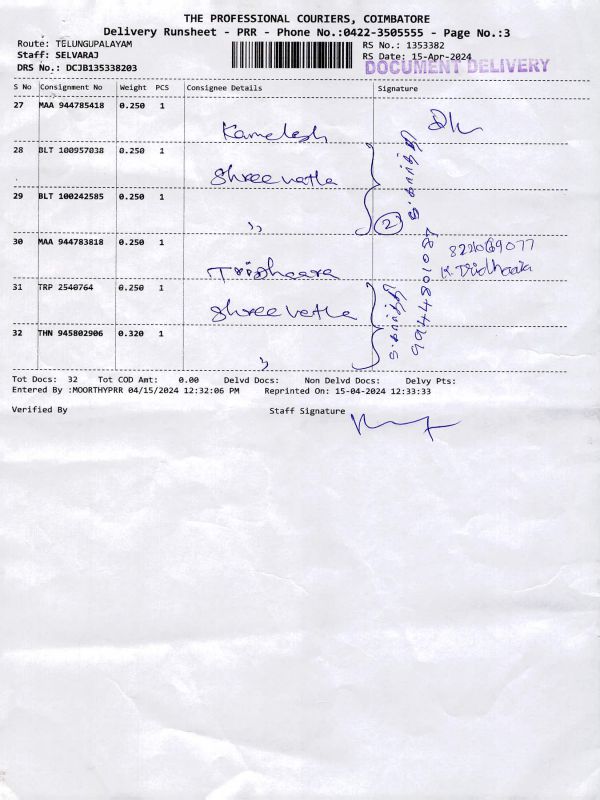 THE PROFESSIONAL COURIERS, COIMBATORE
Delivery Runsheet - PRR - Phone No.:0422-3505555 - Page No.:3
Route: TELUNGUPALAYAM
RS No.: 1353382
Staff: SELVARAJ
RS Date: 15-Apr-2024
DRS No.: DCJB135338203
DOCUMENT DELIVERY
S No Consignment No Weight PCS Consignee Details Signature
27 MAA 944785418 0.250 1
Kamelesh
28 BLT 100957038 0.250 1
Shree vatla
29 BLT 100242585 0.250 1
,, 2
30 MAA 944783818 0.250 1
Tridhaara
K. Tridhaara
31 TRP 2540764 0.250 1
Shree vatla
32 THN 945802906 0.320 1
,,
Tot Docs: 32 Tot COD Amt: 0.00 Delvd Docs: Non Delvd Docs: Delvy Pts:
Entered By :MOORTHYPRR 04/15/2024 12:32:06 PM Reprinted On: 15-04-2024 12:33:33
Verified By Staff Signature